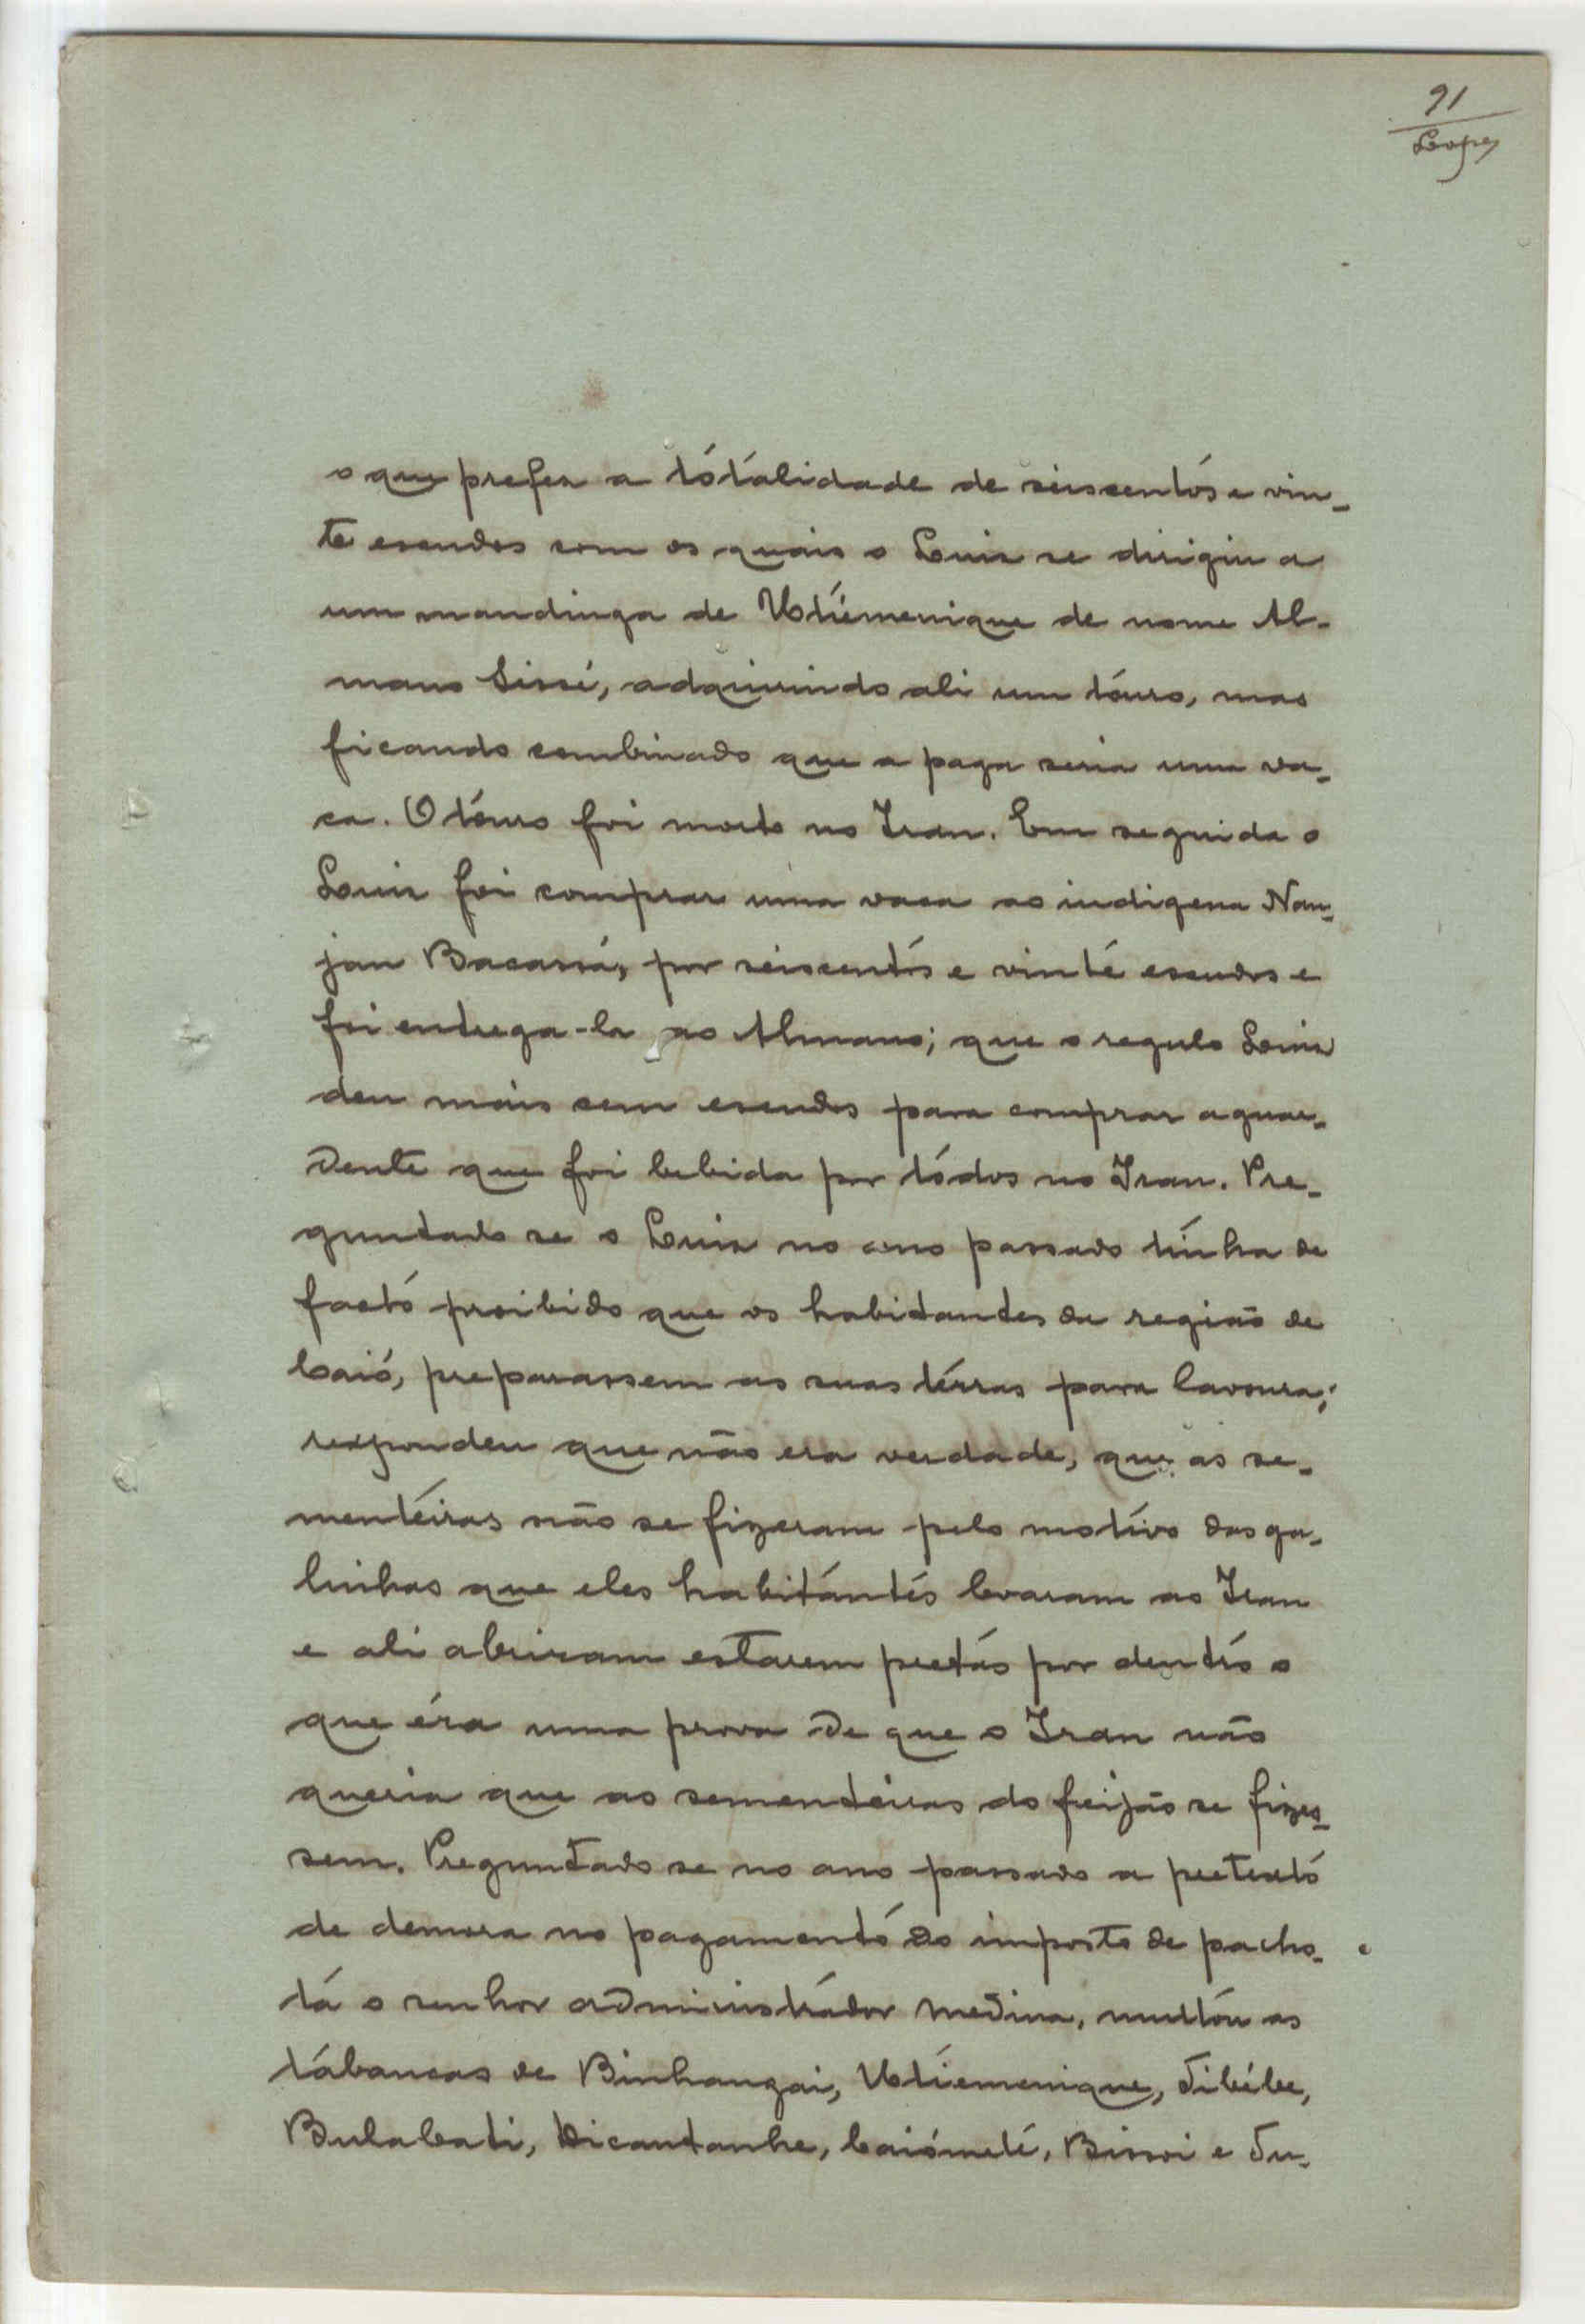 91
Lopes
o que prefez a tótalidade de seiscentós e vin-
te escudos com os quais o Luis se dirigiu a
um mandinga de Utiémenique de nome Al-
mano Sissé, adquirindo ali um touro, mas
ficando combinado que a paga seria uma va-
ca. O touro foi morto no Iran. Em seguida o
Luis foi comprar uma vaca ao indigena Nan-
jan Bacassá, por seiscentós e vinté escudos e
foi entrega-la ao Almano; que o regulo Luis
deu mais cem escudos para comprar aguar-
dente que foi bebida por tódos no Iran. Pre-
guntado se o Luis no ano passado tinha de
factó proibido que os habitantes da região de
Caió, preparassem as suas térras para lavoura;
respondeu que não era verdade, que as se-
mentéiras não se fizeram pelo motivo das ga-
linhas que eles habitántés levaram ao Iran
e ali abriram estarem pretás por dentró o
que éra uma prova de que o Iran não
queria que as sementeiras do feijão se fizes-
sem. Preguntado se no ano passado a pretextó
de demora no pagamentó do imposto de palho-
tá o senhor administrádor Medina, multóu as
tábancas de Binhangai, Utiémenique, Tibébe,
Bulabati, Dicantanhe, Caiómeté, Bissoi e Tu-